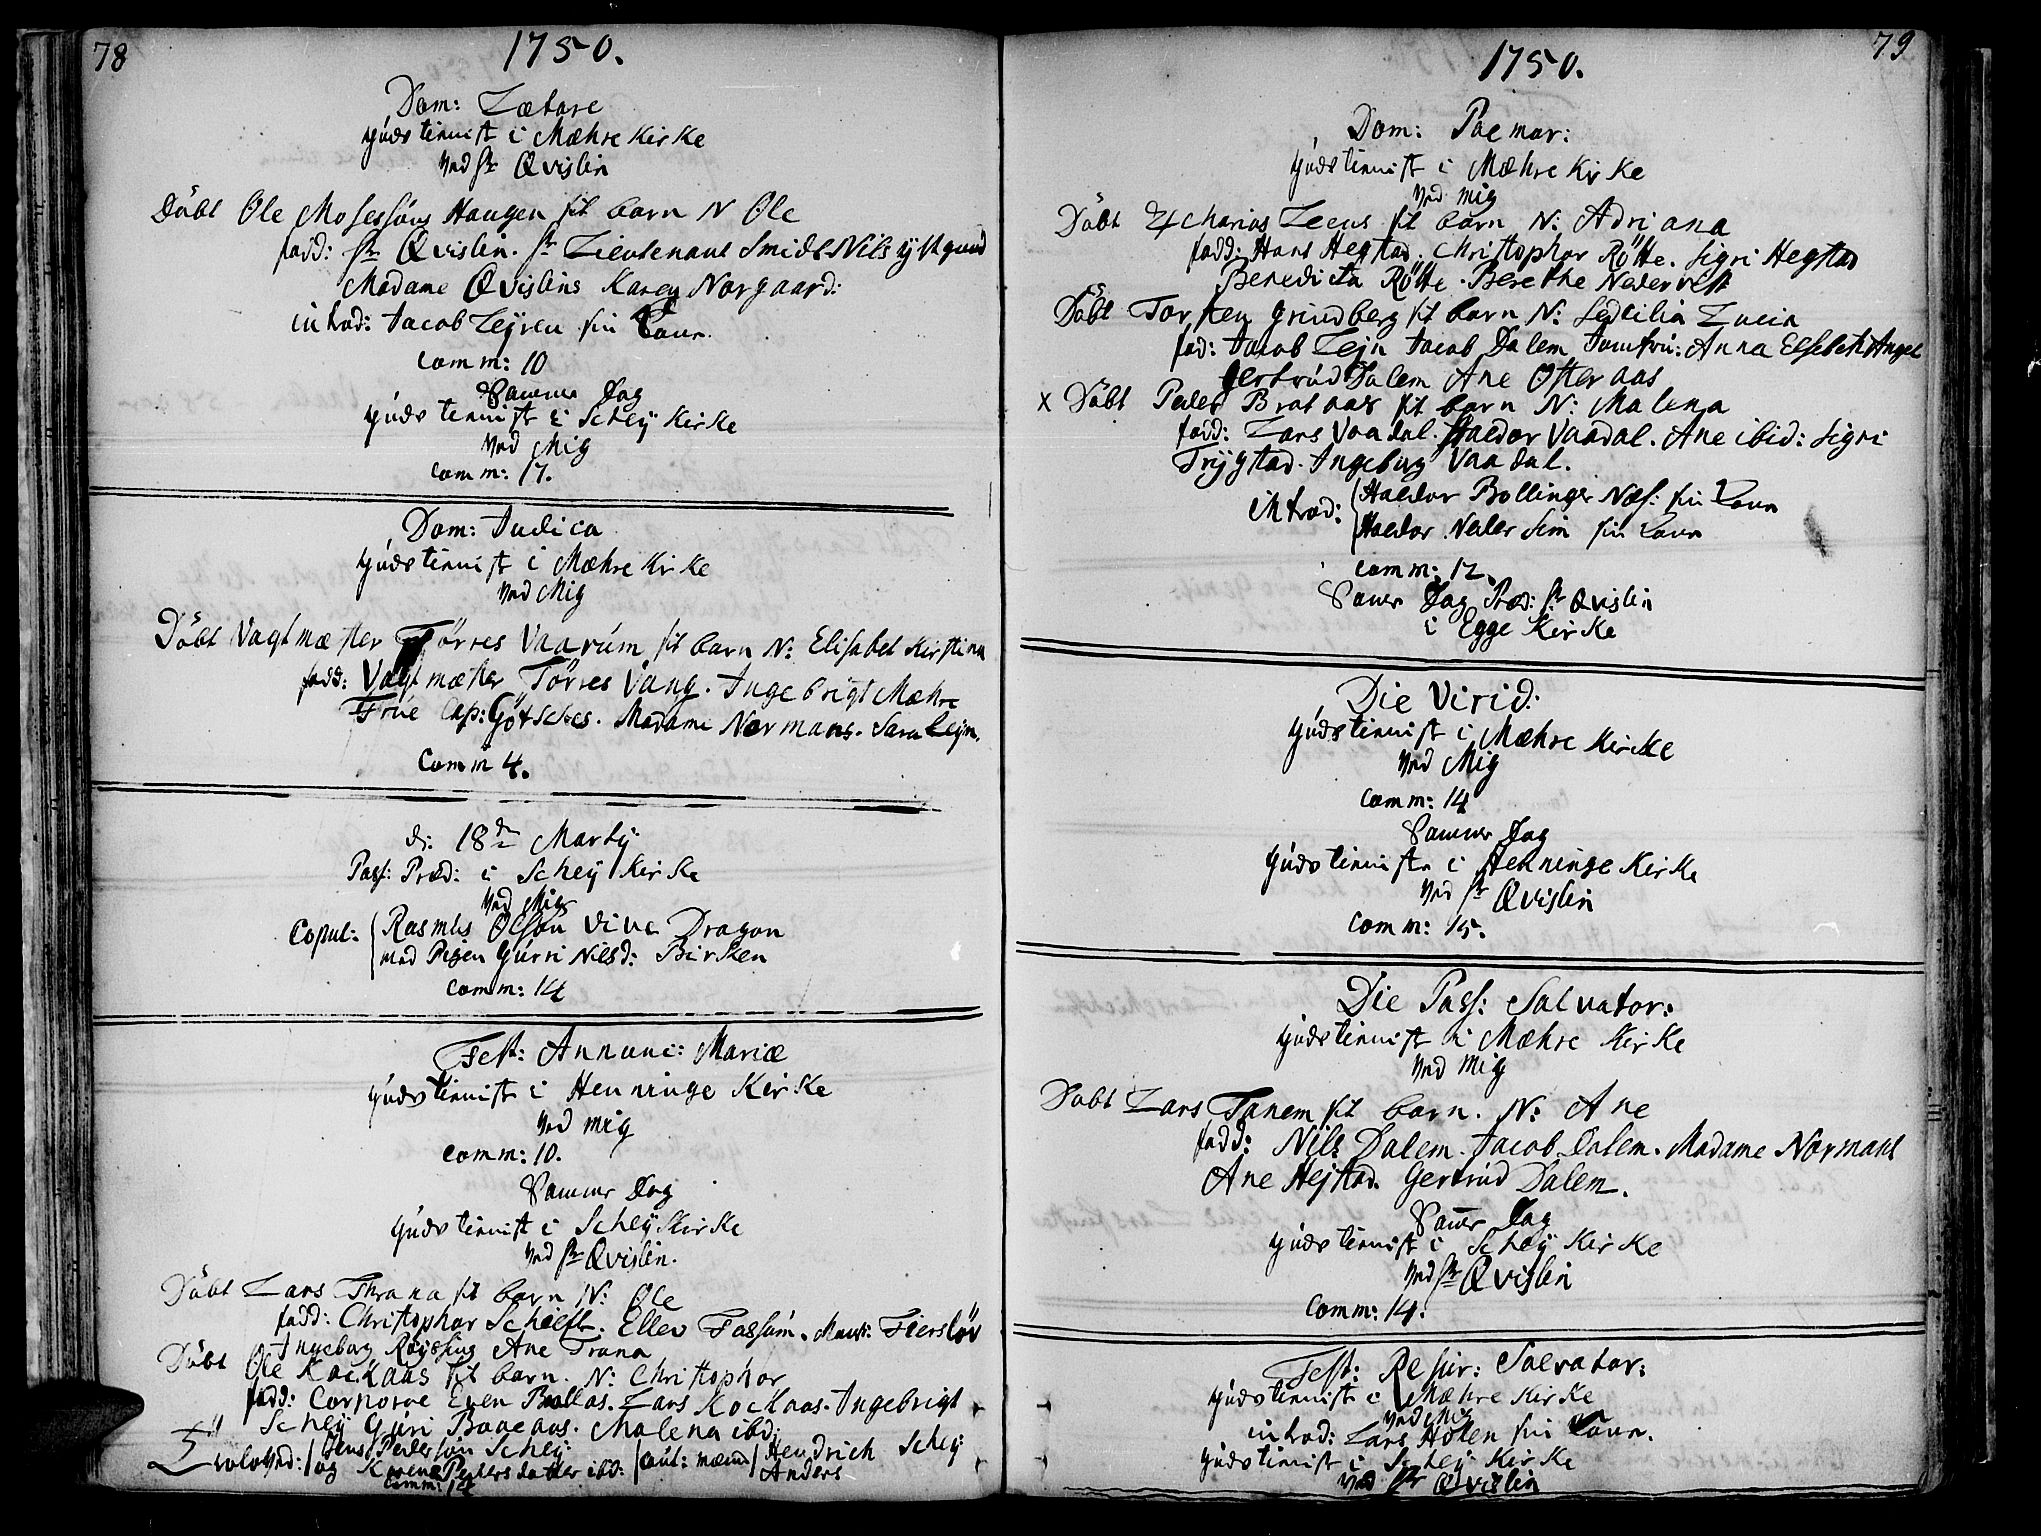 78
1750.
Dom: Lætare
gúds tienist i Mæhre Kirke
ved hr Qvislin
Döbt Ole Mosessöns Haugen sit barn N Ole
fadd: hr Qvislin. hr Lieutenant Smidt Nils
Madame Qvislins Karen Norgaard:
introd: Jacob Leÿren sin Kone.
comm: 10
Samme Dag
gúds tienist i Scheÿ Kirke
ved Mig
comm: 17.
Dom: Judica
gúds tienist i Mæhre Kirke
ved Mig
Döbt Vagtmæster Törres Vaarúm sit barn N: Elisabet Kirstina
fadd: Vagtmæster Törres Vang. Ingebrigt Mæhre
Frúe Cap: Götsches. Madame Normans. Sara Leÿn.
Comm 4.
d: 18de Martij
Pass: Præd: i Scheÿ Kirke
ved Mig
Copul: Rasmus Olsön Dragon
med Pigen Gúrri Nilsd: Birken
comm: 14
Fest: Annunc: Mariæ
gúds tienist i Henninge Kirke
ved mig
comm: 10.
Samme Dag
gúds tienist i Scheÿ Kirke
ved hr Qvislin.
Döbt Lars Thrana sit barn N: Ole
fadd: Christophar Schieft. Ellev Fossúm.
Ingeborg Ane Trana
Döbt Ole Kockaas sit barn. N: Christophor
fadd: Corporve Even Bollas. Lars Kockaas. Ingebrigt
Scheÿ Gúri Baaeaas. Malena ibd:
Trolovd: Jens Pedersön Scheÿ
og Karen Peders datter ibd: caút: mænd Hendrich Scheÿ
Anders
comm: 14
79
1750.
Dom: Palmar:
gúds tienist i Mæhre Kirke
ved mig
Döbt Zacharias Leens sit barn N: Adriana
fadd: Hans Hegstad. Christophor Rötte. Sigri Hegstad
Benedicta Rötte. Berethe Nedervest
Döbt Torsten Grindberg sit barn N: Sedcilia Lucia
fad: Jacob Lejn Jacob Dalem Jomfrú: Anna Elsebeth Angel
Gertrúd Dalem Ane Osteraas
x Döbt Peder Brataas sit barn N: Malena
fadd: Lars Vaadal. Haldor Vaadal. Ane ibid: Sigri
Trÿgstad. Ingeborg Vaadal.
introd: Haldor Bollinger Næs: sin Kone
Haldor Neder Sem sin Kone
comm: 12.
Samme Dag Præd: hr Qvislin
i Egge Kirke
Die Virid:
gúds tienist i Mæhre Kircke
ved Mig
comm: 14
Samme Dag
gúds tienisten i Henninge Kirke
ved hr Qvislin
comm: 15.
Die Pass: Salvator:
gúds tienist i Mæhre Kirke
ved mig
Döbt Lars Tanem sit barn. N: Ane
fadd: Nils Dalem. Jacob Dalem. Madame Normans
Ane Hejstad. Gertrúd Dalem.
Samme Dag
gúds tienist i Scheÿ Kirke
ved hr Qvislin
Comm: 14.
Fest: Resur: Salvator:
gúds tienist i Mæhre Kirke
ved Mig
introd: Lars Holen sin Kone.
gúds tienist i Scheÿ Kirke
ved hr Qvislin